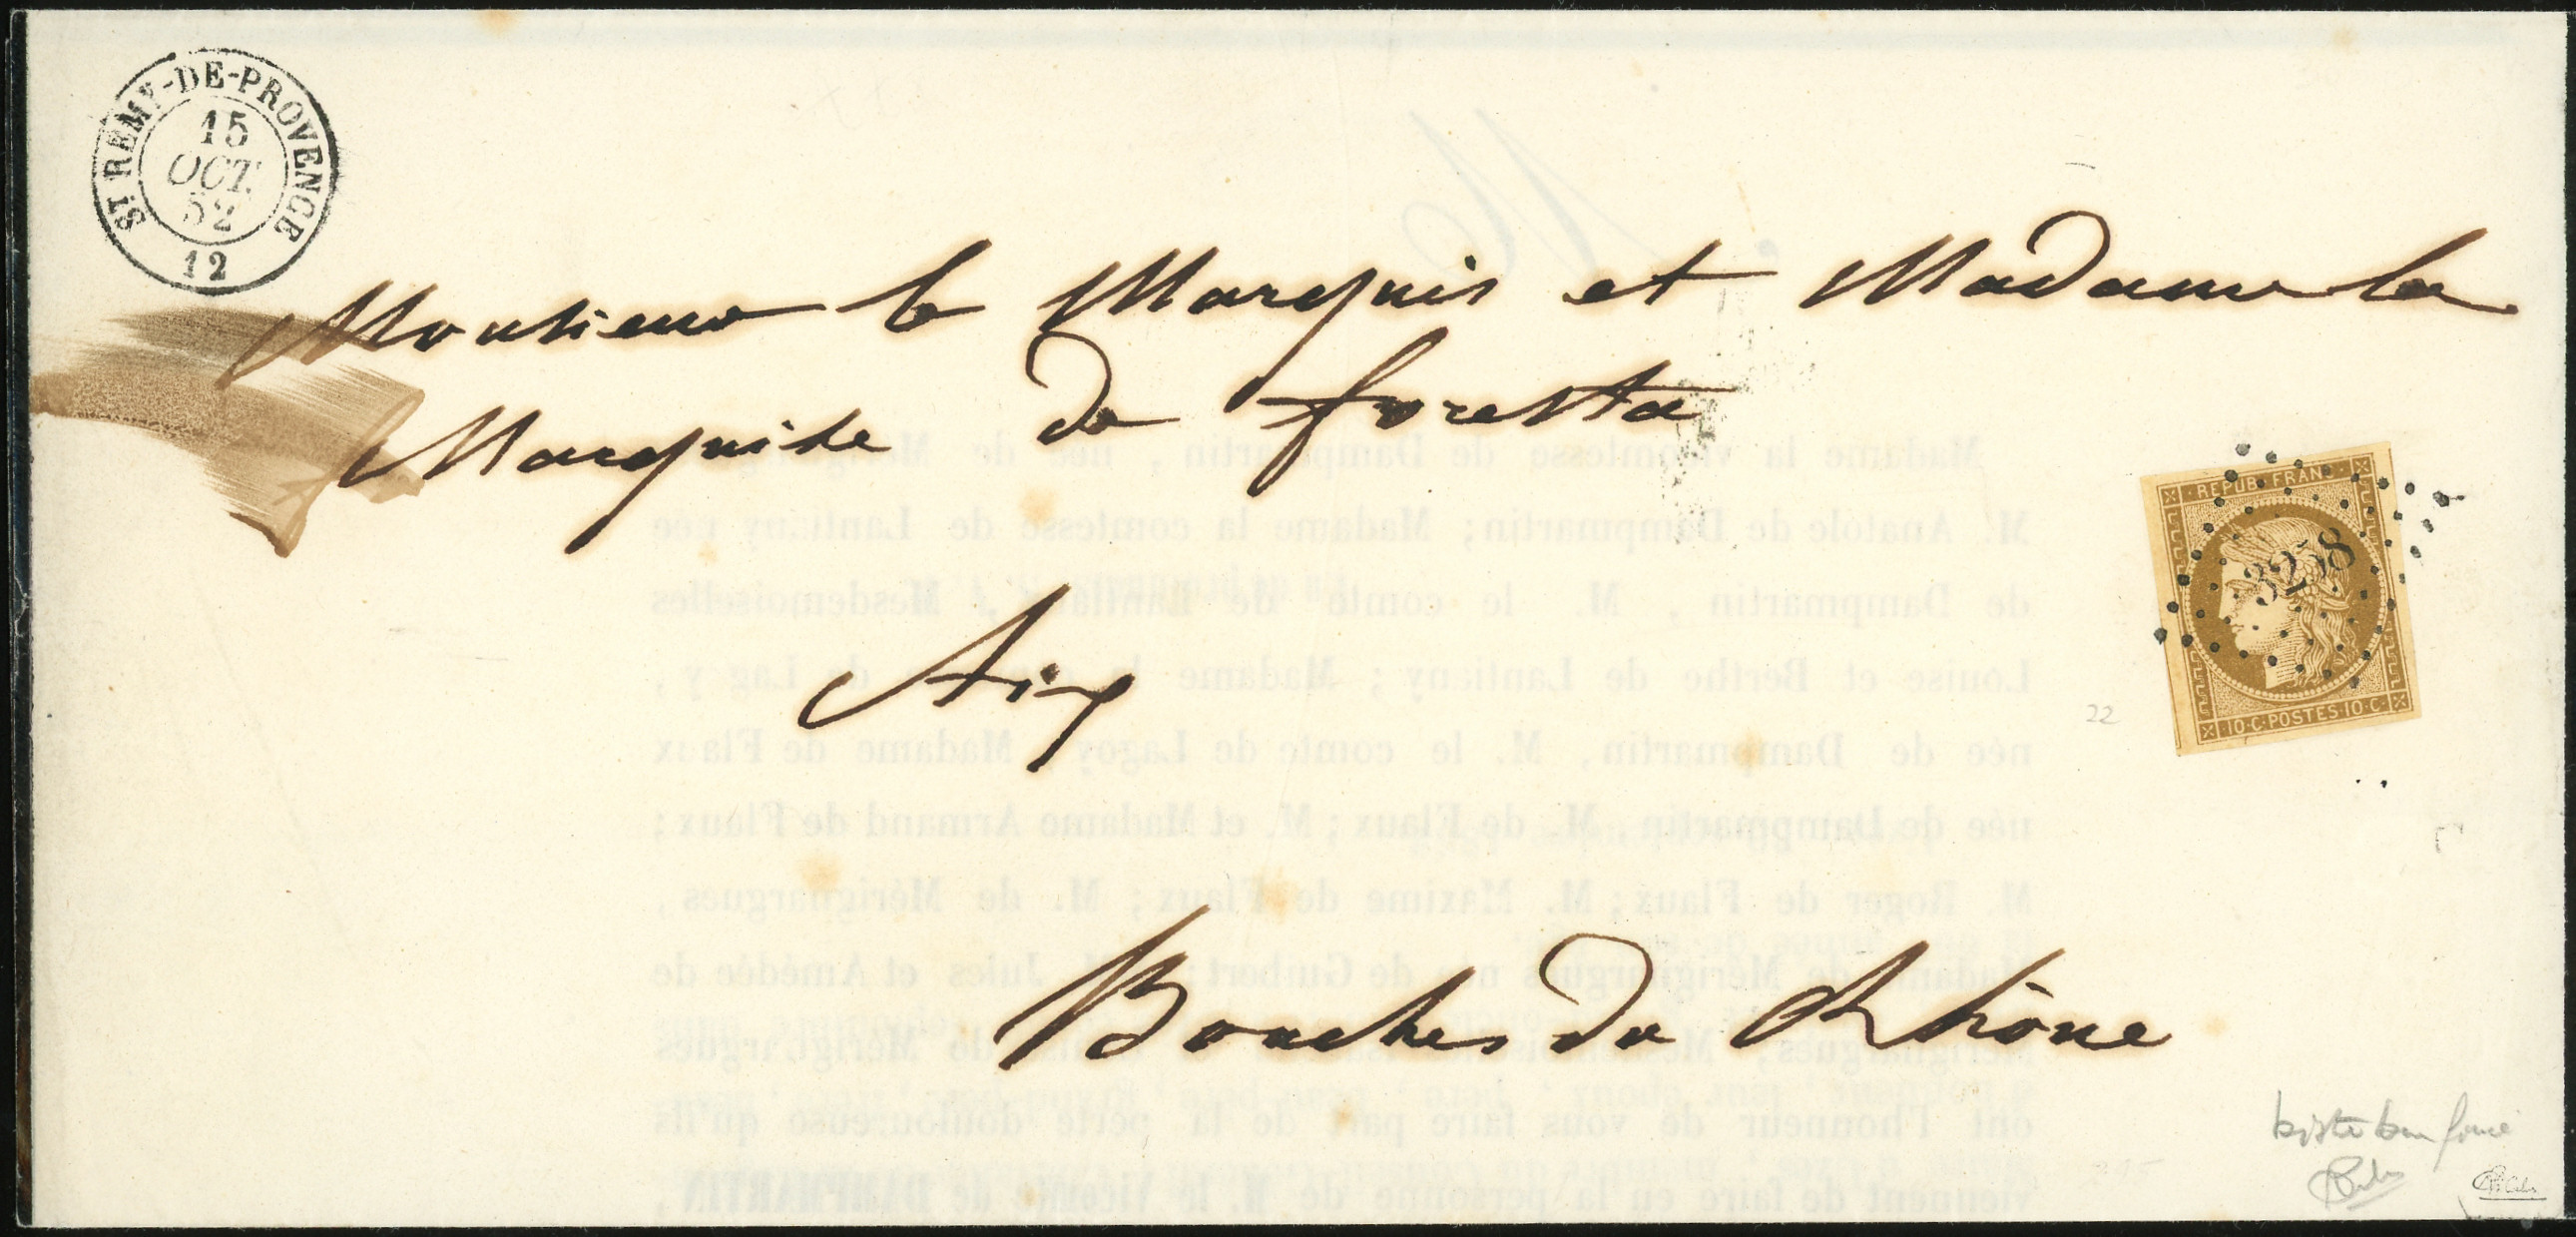 ST REMY-DE-PROVENCE
15
OCT.
52
12
Monsieur le Marquis et Madame la
Marquise de foresta
REPUB. FRANC.
3258
10·C·POSTES·10·C·
22
Aix
Bouches du Rhône
Madame la vicomtesse de Dampmartin, née de
M. Anatole de Dampmartin; Madame la comtesse de Lantiany née
de Dampmartin, M. le comte de Lantiany, Mesdemoiselles
Louise et Berthe de Lantiany; Madame la de Lagoy,
née de Dampmartin, M. le comte de Lagoy, Madame de Flaux
née de Dampmartin, M. de Flaux; M. et Madame Armand de Flaux;
M. Roger de Flaux; M. Maxime de Flaux; M. de Mérignargues,
Madame de Mérignargues née de Guibert; Jules et Amédée de
Mérignargues; de Mérignargues
ont l'honneur de vous faire part de la perte douloureuse qu'ils
viennent de faire en la personne de M. le Vicomte de DAMPMARTIN,
bistre brun foncé